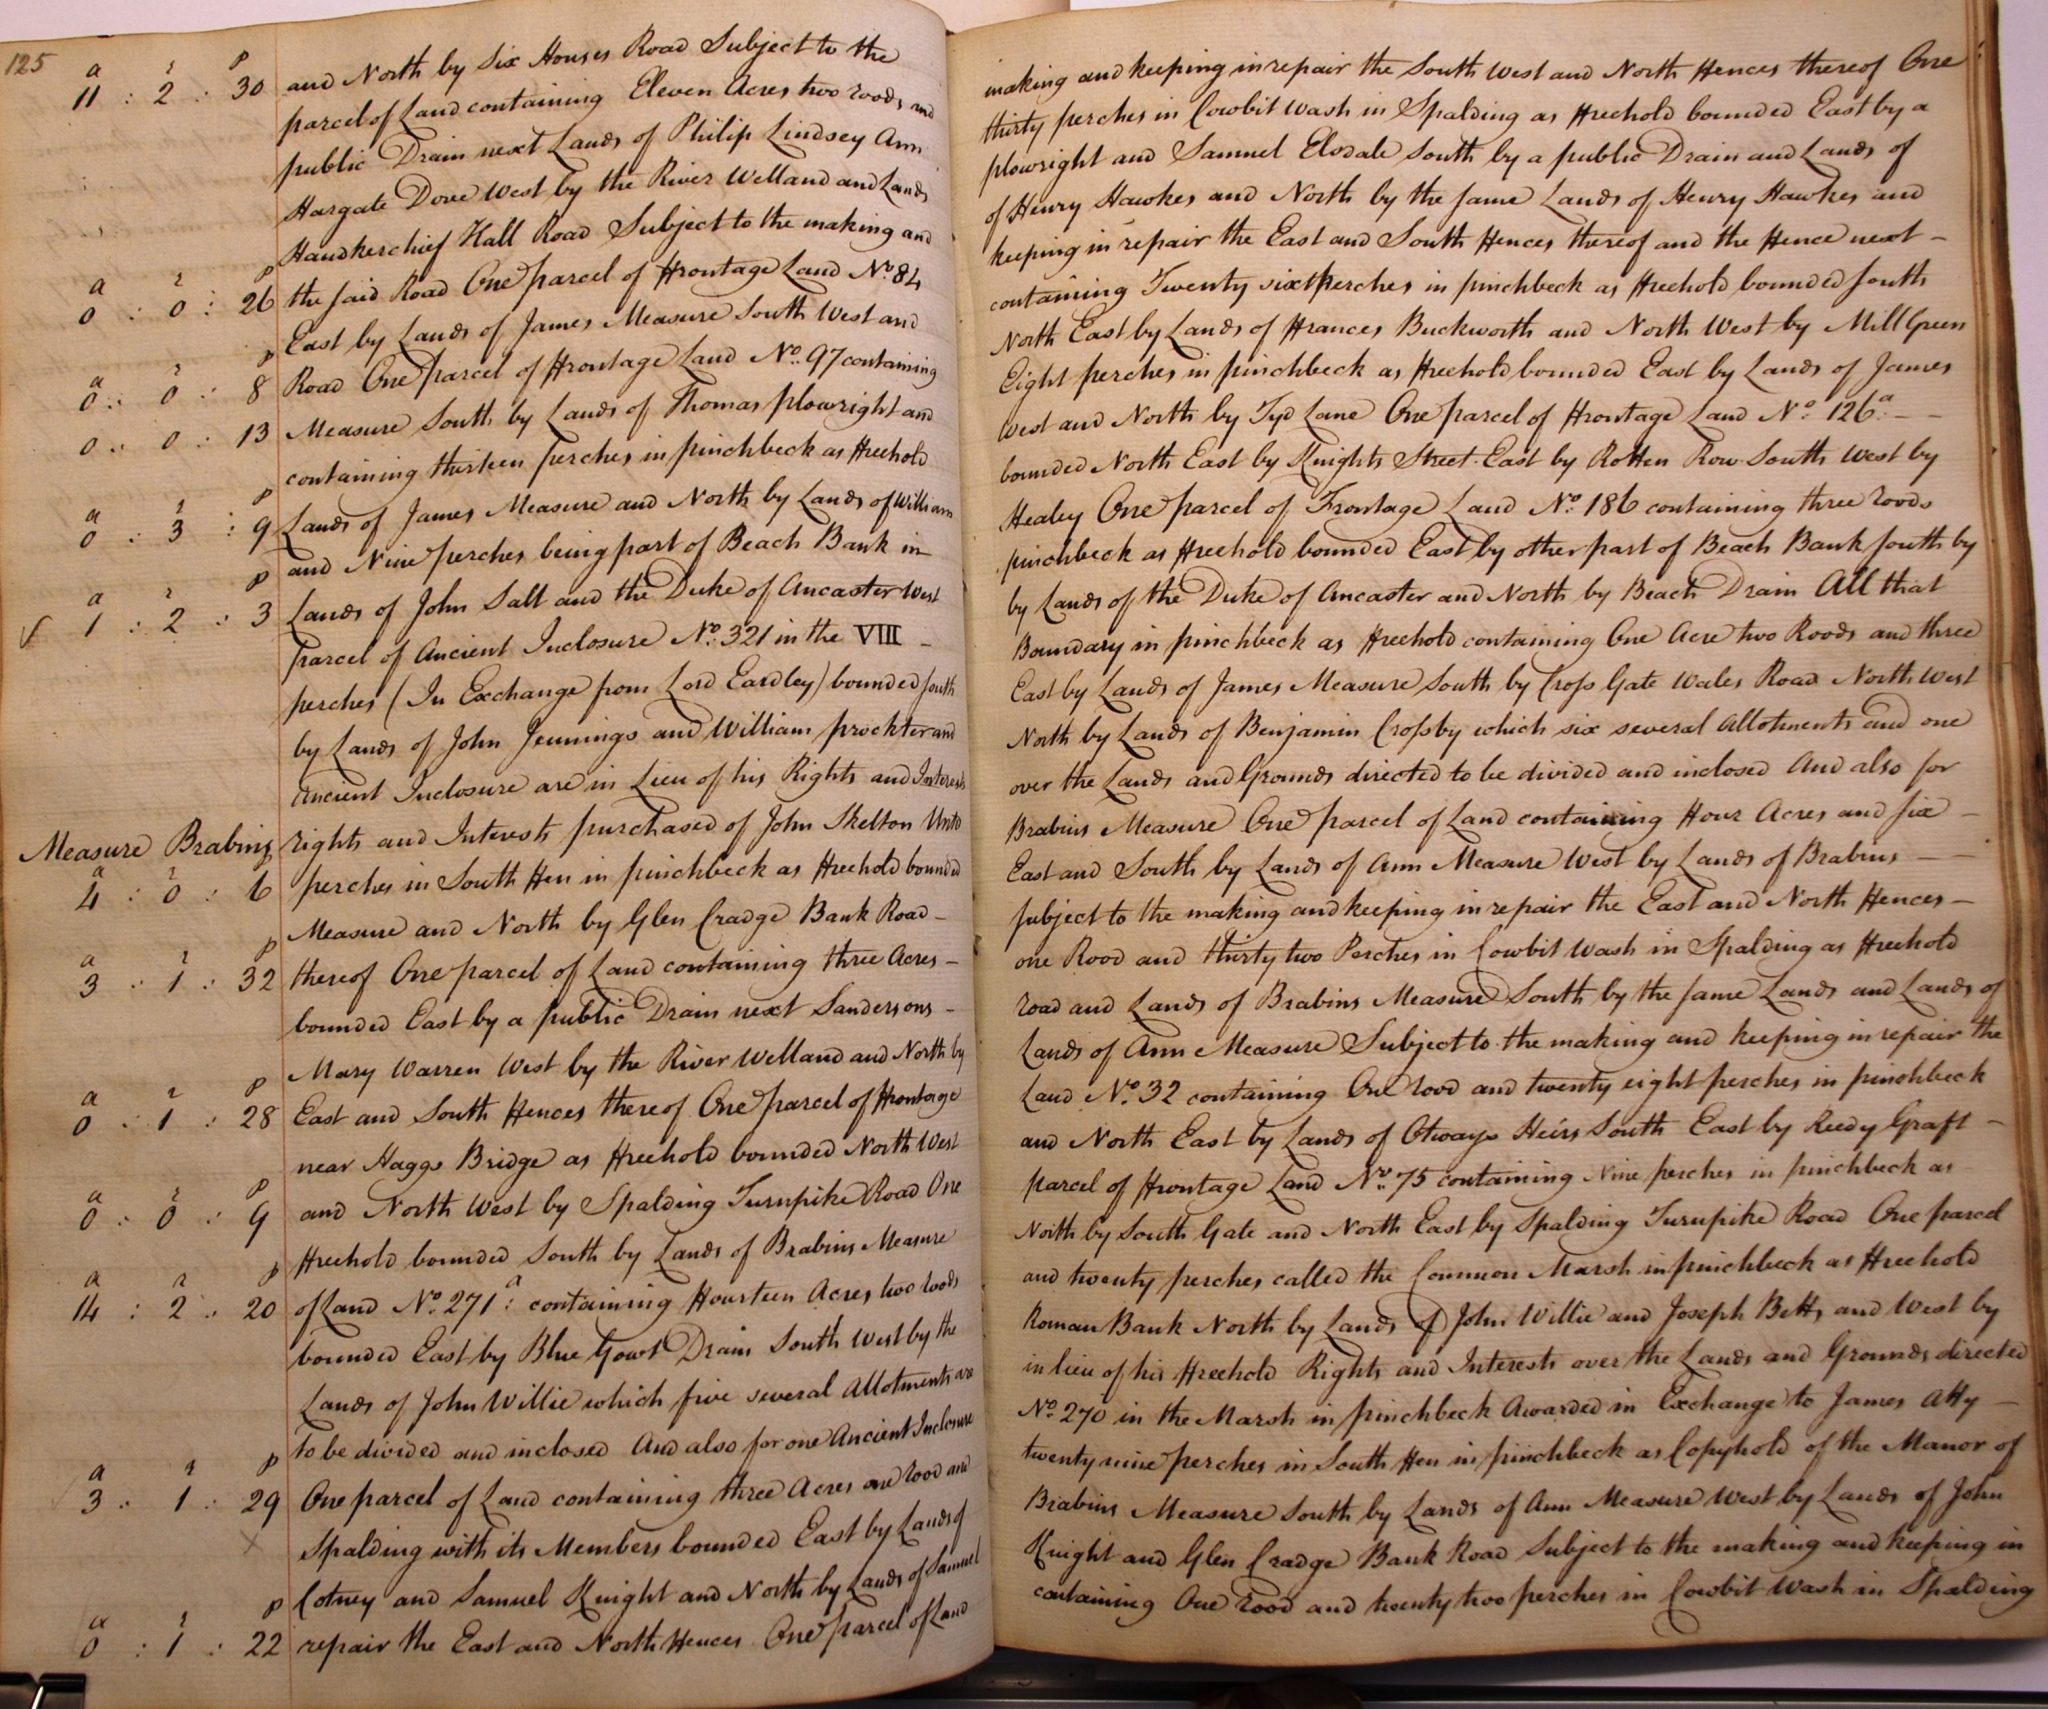 125
a r p
11 : 2 : 30 and North by Six Houses Road Subject to the making and keeping in repair the South West and North Fences thereof One
parcel of Land containing Eleven Acres two roods and thirty perches in Cowbit Wash in Spalding as Freehold bounded East by a
public Drain next Lands of Philip Lindsey Ann plowright and Samuel Elsdale South by a public Drain and Lands of
Hargate Dove West by the River Welland and Lands of Henry Hawkes and North by the same Lands of Henry Hawkes and
Handkerchief Hall Road Subject to the making and keeping in repair the East and South Fences thereof and the Fence next
a r p
0 : 0 : 26 the said Road One parcel of Frontage Land No. 84 containing Twenty six perches in pinchbeck as Freehold bounded South
East by Lands of James Measure South West and North East by Lands of Frances Buckworth and North West by Mill Green
a r p
0 : 0 : 8 Road One parcel of Frontage Land No. 97 containing Eight perches in pinchbeck as Freehold bounded East by Lands of James
0 : 0 : 13 Measure South by Lands of Thomas plowright and West and North by Tyd Lane One parcel of Frontage Land No. 126a. — —
containing thirteen perches in pinchbeck as Freehold bounded North East by Knights Street East by Rotten Row South West by
a r p
0 : 3 : 9 Lands of James Measure and North by Lands of William Healey One parcel of Frontage Land No. 186 containing three roods
and Nine perches being part of Beach Bank in pinchbeck as Freehold bounded East by other part of Beach Bank South by
a r p
1 : 2 : 3 Lands of John Salt and the Duke of Ancaster West by Lands of the Duke of Ancaster and North by Beach Drain All that
parcel of Ancient Inclosure No. 321 in the VIII — Boundary in pinchbeck as Freehold containing One Acre two Roods and three
perches (In Exchange from Lord Eardley) bounded South East by Lands of James Measure South by Cross Gate Wales Road North West
by Lands of John Jennings and William prockter and North by Lands of Benjamin Crosby which six several Allotments and one
Ancient Inclosure are in Lieu of his Rights and Interests over the Lands and Grounds directed to be divided and inclosed And also for
Measure Brabins rights and Interests purchased of John Skelton Unto Brabins Measure One parcel of Land containing Four Acres and six —
a r
4 : 0 : 6 perches in South Fen in pinchbeck as Freehold bounded East and South by Lands of Ann Measure West by Lands of Brabins — —
Measure and North by Glen Cradge Bank Road — subject to the making and keeping in repair the East and North Fences —
a r p
3 : 1 : 32 thereof One parcel of Land containing three Acres — one Rood and thirty two Perches in Cowbit Wash in Spalding as Freehold
bounded East by a public Drain next Sandersons — road and Lands of Brabins Measure South by the same Lands and Lands of
Mary Warren West by the River Welland and North by Lands of Ann Measure Subject to the making and keeping in repair the
a r p
0 : 1 : 28 East and South Fences thereof One parcel of Frontage Land No. 32 containing One rood and twenty eight perches in pinchbeck
near Haggs Bridge as Freehold bounded North West and North East by Lands of Otways Heirs South East by Reedy Graft —
a r p
0 : 0 : 9 and North West by Spalding Turnpike Road One parcel of Frontage Land No. 75 containing Nine perches in pinchbeck as
Freehold bounded South by Lands of Brabins Measure North by South Gate and North East by Spalding Turnpike Road One parcel
a r p
14 : 2 : 20 of Land No. 271a. containing Fourteen Acres two roods and twenty perches called the Common Marsh in pinchbeck as Freehold
bounded East by Blue Gowt Drain South West by the Roman Bank North by Lands of John Willie and Joseph Betts and West by
Lands of John Willie which five several Allotments are in lieu of his Freehold Rights and Interests over the Lands and Grounds directed
to be divided and inclosed And also for one Ancient Inclosure No. 270 in the Marsh in pinchbeck Awarded in Exchange to James Atty —
a r p
3 : 1 : 29 One parcel of Land containing three Acres one rood and twenty nine perches in South Fen in pinchbeck as Copyhold of the Manor of
Spalding with its Members bounded East by Lands of Brabins Measure South by Lands of Ann Measure West by Lands of John
Cotney and Samuel Knight and North by Lands of Samuel Knight and Glen Cradge Bank Road Subject to the making and keeping in
a r p
0 : 1 : 22 repair the East and North Fences One parcel of Land containing One rood and twenty two perches in Cowbit Wash in Spalding